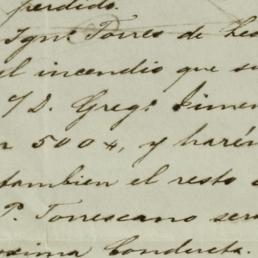 perdido.
Ign.º Torres de Leo
el incendio que su
/D. Greg.º Jimen
n 500 $, y harén
tambien el resto
P. Torrescano ser
oxima Conducta.